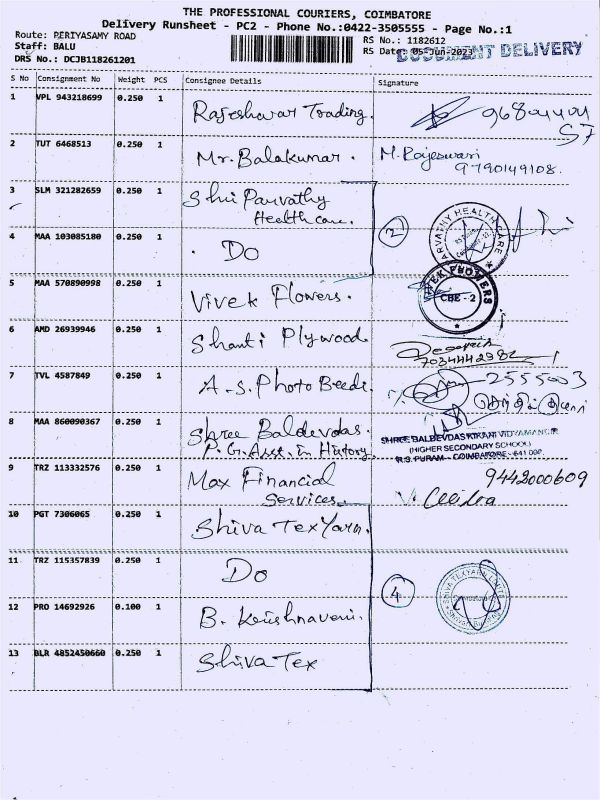 THE PROFESSIONAL COURIERS, COIMBATORE
Delivery Runsheet - PC2 - Phone No.:0422-3505555 - Page No.:1
Route: PERIYASAMY ROAD
Staff: BALU
DRS No.: DCJB118261201
RS No.: 1182612
RS Date: 05-Jun-2023
DOCUMENT DELIVERY
S No Consignment No Weight PCS Consignee Details Signature
1 VPL 943218699 0.250 1 Rajeshwar Trading.
57
2 TUT 6468513 0.250 1 Mr. Balakumar. M. Rajeswari
9790149108.
3 SLM 321282659 0.250 1 Shri Parvathy
Health care.
2
PARVATHY HEALTH CARE
4 MAA 103085180 0.250 1 Do
5 MAA 570890998 0.250 1 Vivek Flowers.
VIVEK FLOWERS
CBE - 2
6 AMD 26939946 0.250 1 Shanti Plywood
7034442982
7 TVL 4587849 0.250 1 A.S. Photo Beeds. 2555003
8 MAA 860090367 0.250 1 Shree Baldevdas.
P.G. Asst. in History
SHREE BALDEVDAS KIKANI VIDYAMANDIR
(HIGHER SECONDARY SCHOOL)
R.S. PURAM - COIMBATORE - 641 002.
9 TRZ 113332576 0.250 1 Max Financial
Services. 9442000609
10 PGT 7306065 0.250 1 Shiva Tex Yarn.
11 TRZ 115357839 0.250 1 Do
4
SHIVA TEXYARN LIMITED
12 PRO 14692926 0.100 1 B. Krishnaveni.
13 BLR 4852450660 0.250 1 Shiva Tex